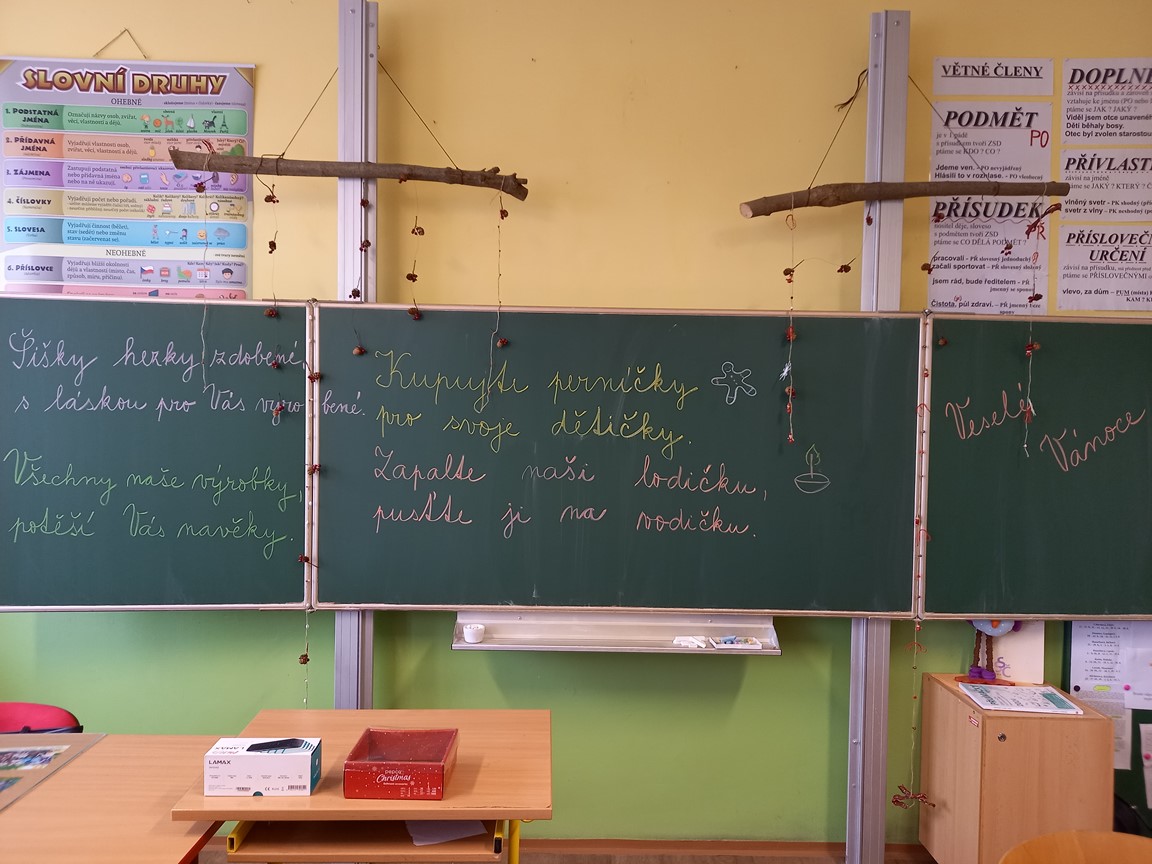 SLOVNÍ DRUHY
OHEBNÉ
1. PODSTATNÁ JMÉNA
Označují názvy osob, zvířat,
věcí, vlastností a dějů.
2. PŘÍDAVNÁ JMÉNA
Vyjadřují vlastnosti osob,
zvířat, věcí, vlastností a dějů.
3. ZÁJMENA
Zastupují podstatná
nebo přídavná jména
nebo na ně ukazují.
4. ČÍSLOVKY
Vyjadřují počet nebo pořadí.
5. SLOVESA
Vyjadřují činnost (běžet),
stav (sedět) nebo změnu
stavu (začervenat se).
NEOHEBNÉ
6. PŘÍSLOVCE
Vyjadřují bližší okolnosti
dějů a vlastností (místo, čas,
způsob, míru, příčinu).
VĚTNÉ ČLENY
PODMĚT
PO
je v 1. pádě
s přísudkem tvoří ZSD
ptáme se KDO ? CO ?
Jdeme ven. - PO nevyjádřený
Hlásili to v rozhlase. - PO všeobecný
PŘÍSUDEK
PŘ
s podmětem tvoří ZSD
ptáme se CO DĚLÁ PODMĚT ?
pracovali - PŘ slovesný jednoduchý
začali sportovat - PŘ slovesný složený
jsem rád, bude ředitelem - PŘ
jmenný se sponou
Čistota, půl zdraví. - PŘ jmenný beze
spony
DOPLN
závisí na přísudku a zároveň
vztahuje ke jménu (PO nebo
ptáme se JAK ? JAKÝ ?
Viděl jsem otce unaveného
Děti běhaly bosy.
Otec byl zvolen starostou
PŘÍVLAST
ptáme se JAKÝ ? KTERÝ ?
vlněný svetr - PK shodný
svetr z vlny - PK neshodný
PŘÍSLOVEČN
URČENÍ
závisí na přísudku,
ptáme se PŘÍSLOVEČNÝMI
vlevo, za dům - PUM (místa)
KAM ?
Šišky hezky zdobené,
s láskou pro Vás vyrobené.
Všechny naše výrobky,
potěší Vás navěky.
Kupujte perníčky
pro svoje dětičky.
Zapalte naši lodičku,
pusťte ji na vodičku.
Veselé
Vánoce
LAMAX
LAMAX
pepco
Christmas